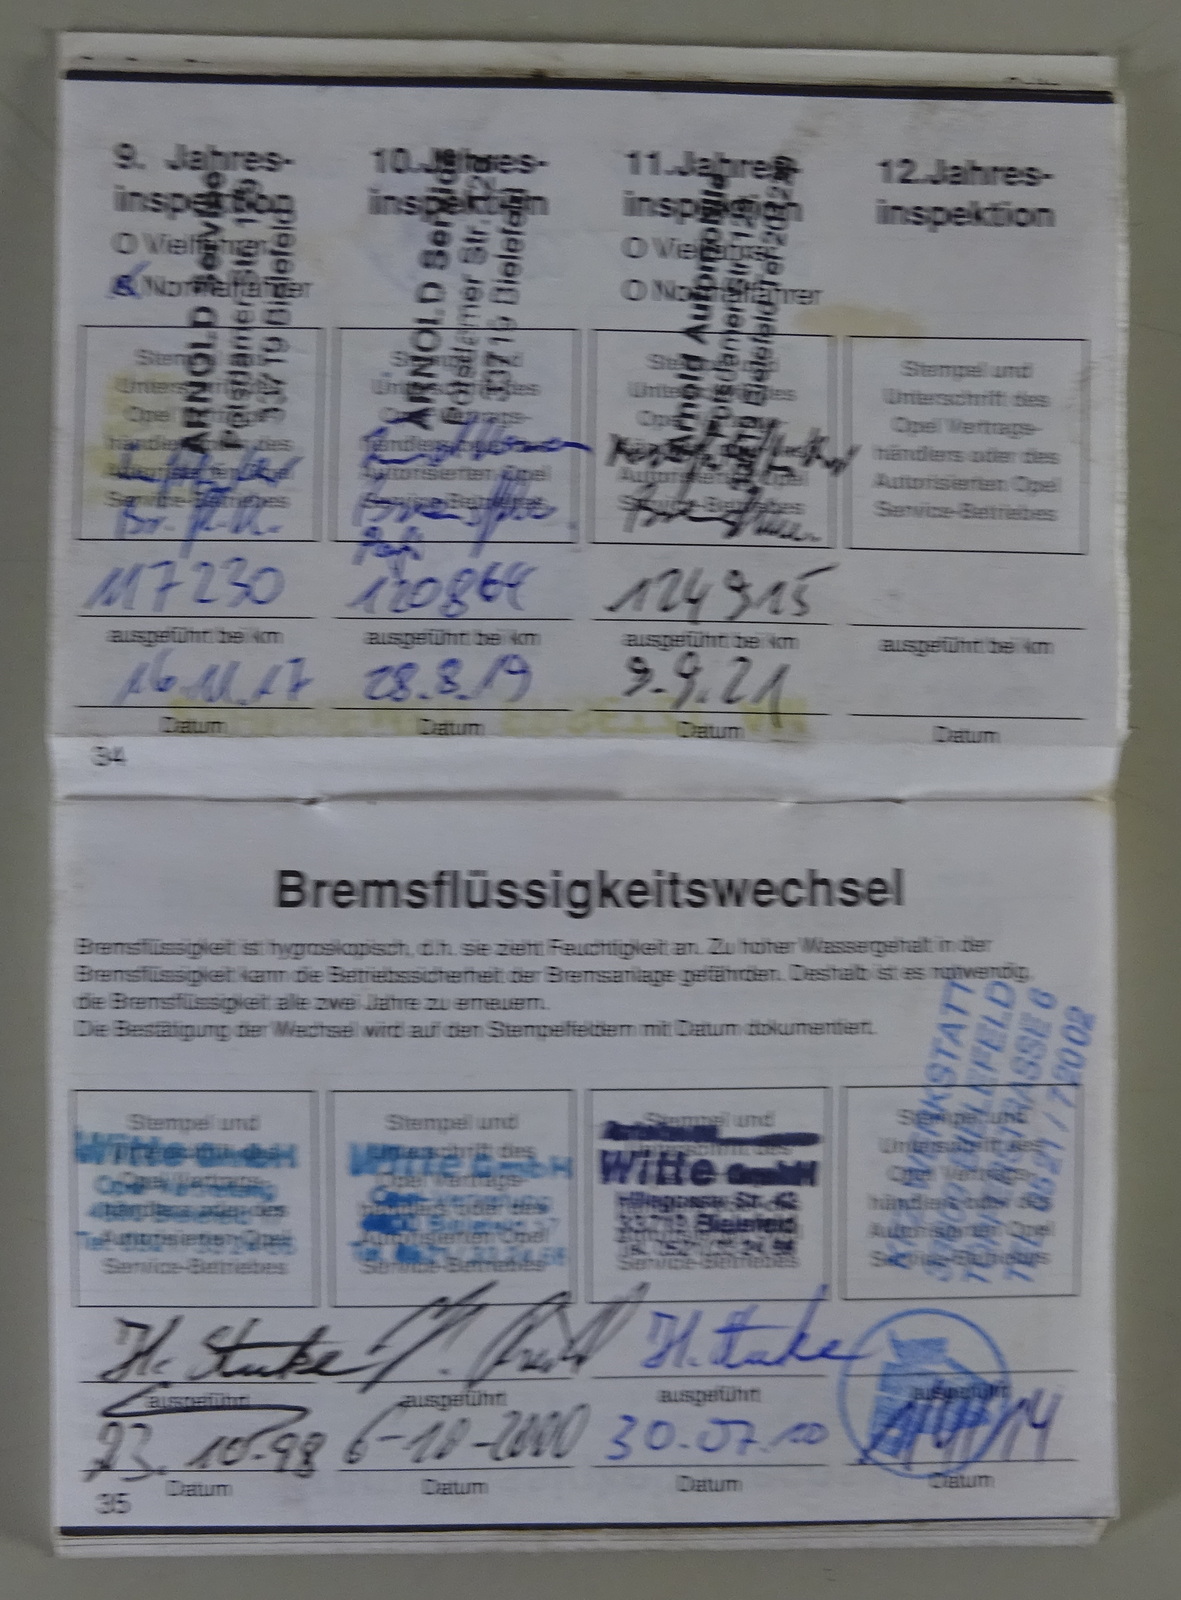 9. Jahres-
inspektion
O Vielfahrer
Normalfahrer
ARNOLD Service
Potsdamer Str.
33719 Bielefeld
Stempel und
Unterschrift des
Opel Vertrags-
händlers oder des
Autorisierten Opel
Service-Betriebes
117230
ausgeführt bei km
16.11.17
Datum
10.Jahres-
inspektion
ARNOLD Service
Potsdamer Str.
33719 Bielefeld
Stempel und
Unterschrift des
Opel Vertrags-
händlers oder des
Autorisierten Opel
Service-Betriebes
120864
ausgeführt bei km
28.8.19
Datum
11.Jahres-
inspektion
O Vielfahrer
O Normalfahrer
Arnold Automobile
Potsdamer Str.
Bielefeld
Stempel und
Unterschrift des
Opel Vertrags-
händlers oder des
Autorisierten Opel
Service-Betriebes
124915
ausgeführt bei km
9.9.21
Datum
12.Jahres-
inspektion
Stempel und
Unterschrift des
Opel Vertrags-
händlers oder des
Autorisierten Opel
Service-Betriebes
ausgeführt bei km
Datum
34
Bremsflüssigkeitswechsel
Bremsflüssigkeit ist hygroskopisch, d.h. sie zieht Feuchtigkeit an. Zu hoher Wassergehalt in der
Bremsflüssigkeit kann die Betriebssicherheit der Bremsanlage gefährden. Deshalb ist es notwendig,
die Bremsflüssigkeit alle zwei Jahre zu erneuern.
Die Bestätigung der Wechsel wird auf den Stempelfeldern mit Datum dokumentiert.
Stempel und
Unterschrift des
Opel Vertrags-
händlers oder des
Autorisierten Opel
Service-Betriebes
Witte GmbH
H. Stuke
ausgeführt
23.10.98
Datum
Stempel und
Unterschrift des
Opel Vertrags-
händlers oder des
Autorisierten Opel
Service-Betriebes
Witte GmbH
ausgeführt
6-10-2000
Datum
Stempel und
Unterschrift des
Witte GmbH
Hillegosser Str. 42
33719 Bielefeld
Service-Betriebes
H. Stuke
ausgeführt
30.07.10
Datum
Stempel und
Unterschrift des
Opel Vertrags-
händlers oder des
Autorisierten Opel
Service-Betriebes
0521 / 72002
ausgeführt
Datum
35